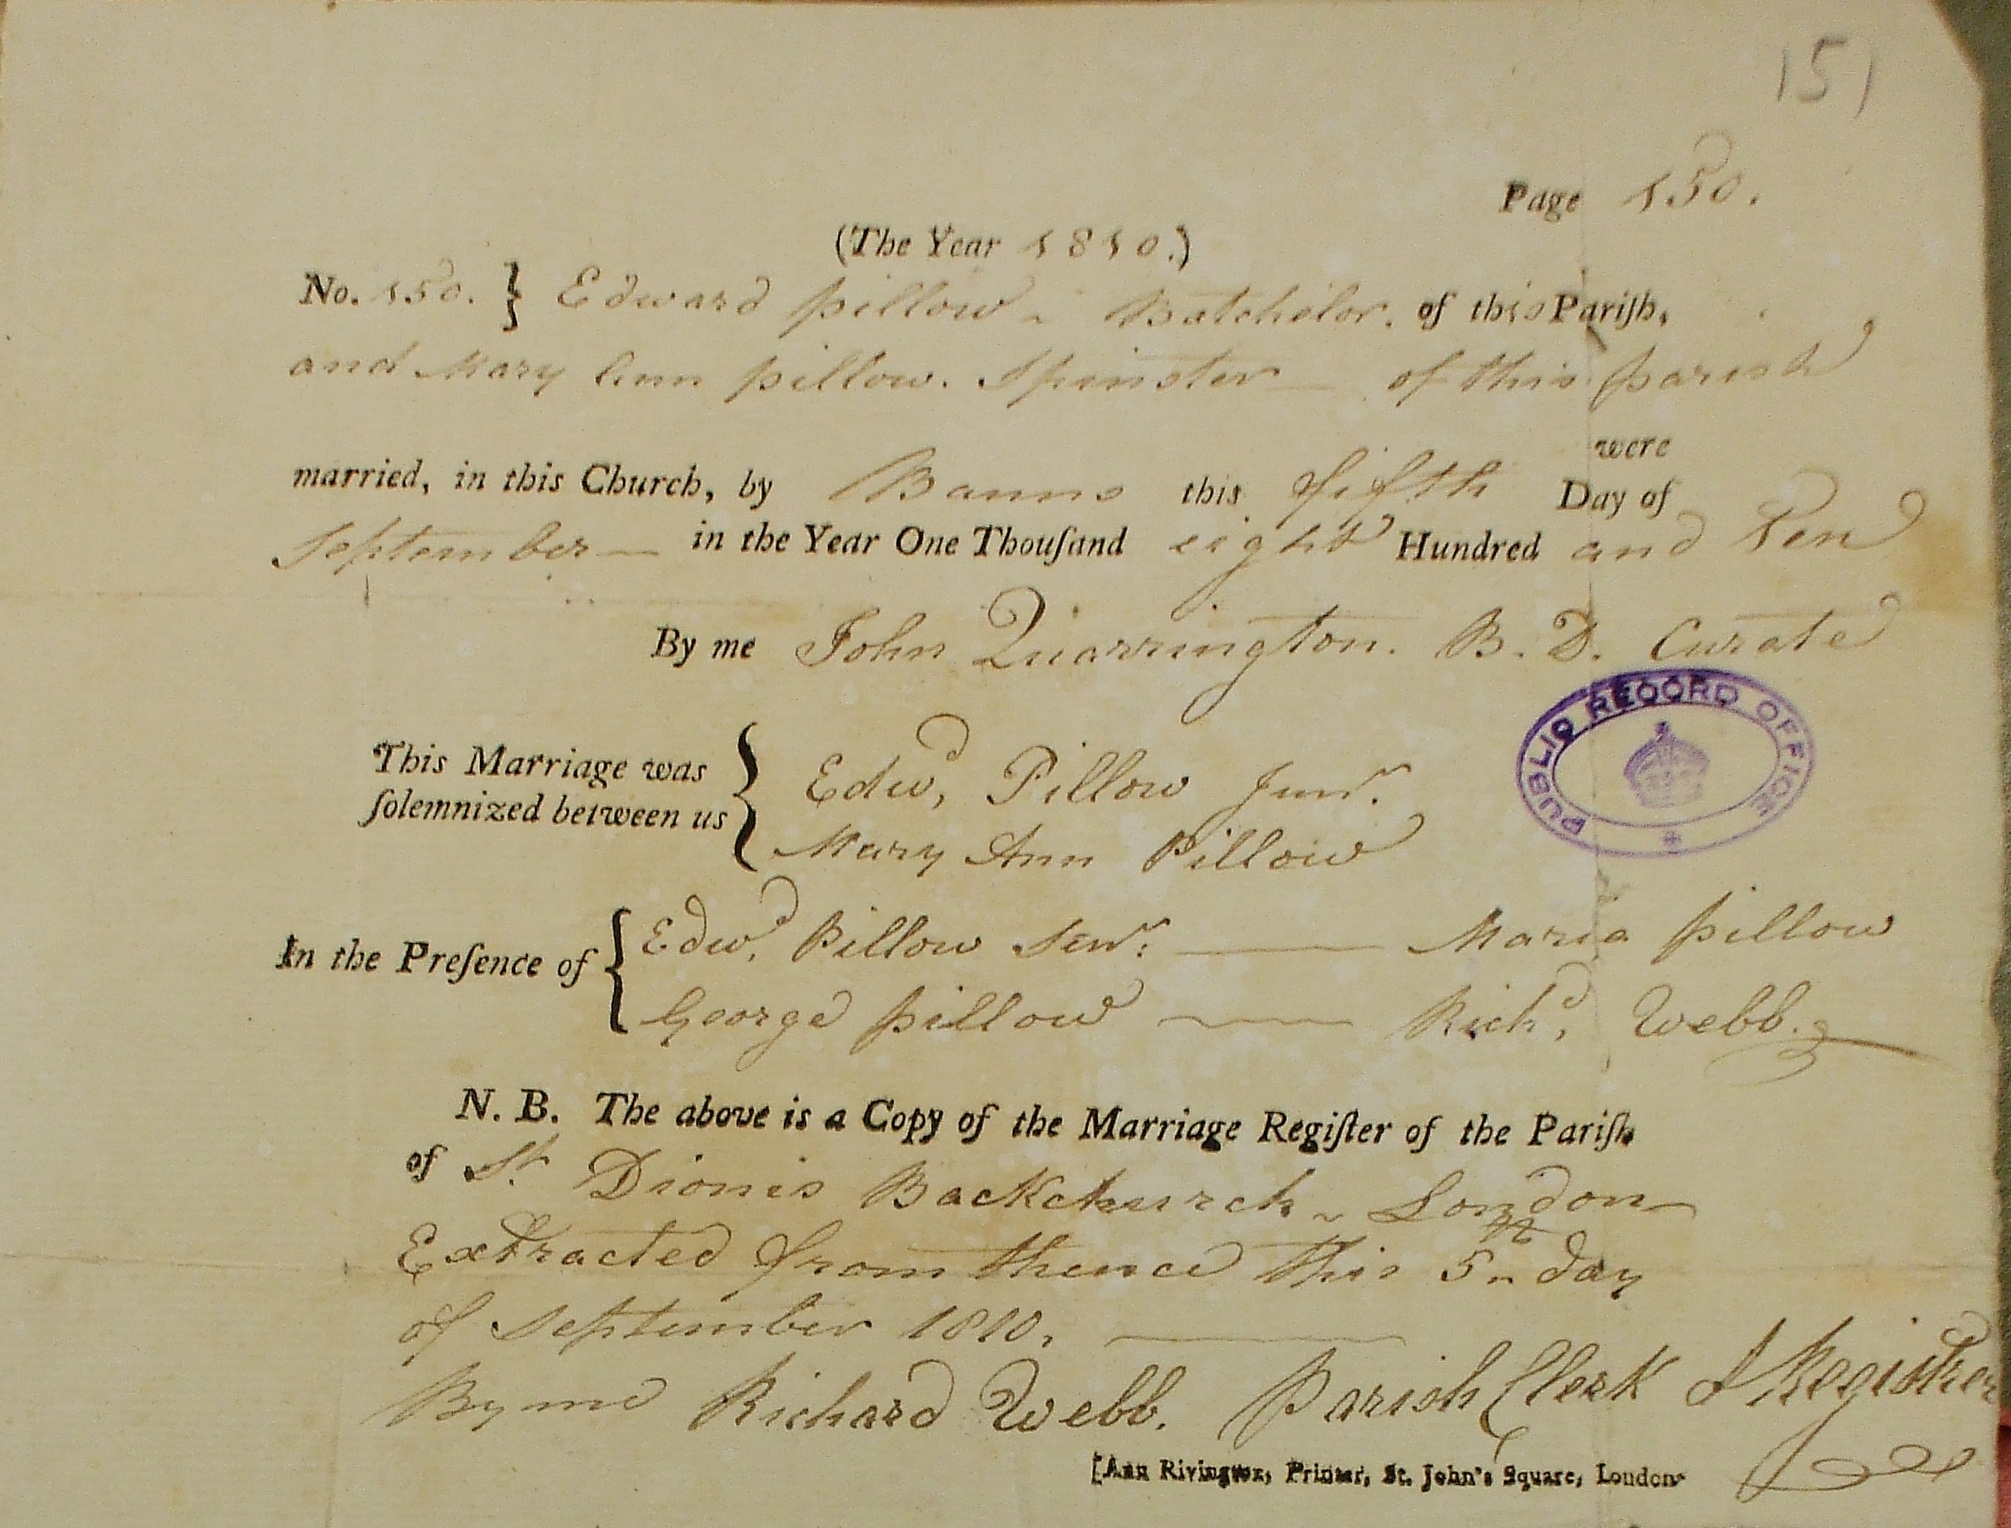 151
Page 150.
(The Year 1810.)
No. 150. } Edward Pillow - Batchelor. of this Pariſh,
and Mary Ann Pillow. Spinster — of this Parish
were
married, in this Church, by Banns this fifth Day of
September — in the Year One Thouſand eight Hundred and Ten
By me John Quarrington. B. D. Curate
PUBLIC RECORD OFFICE
This Marriage was { Edwd, Pillow Junr.
ſolemnized between us { Mary Ann Pillow
In the Preſence of { Edwd, Pillow Senr. — Maria Pillow
George Pillow — Richd, Webb.
N. B. The above is a Copy of the Marriage Regiſter of the Pariſh
of St. Dionis Backchurch - London
Extracted from thence this 5th day
of September 1810.
By me Richard Webb. Parish Clerk & Register
[Ann Rivington, Printer, St. John's Square, London.